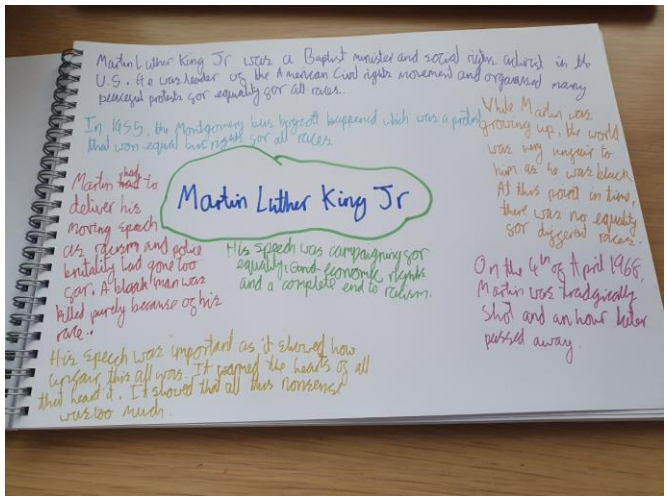 Martin Luther King Jr was a Baptist minister and social rights activist in the
U.S. He was leader of the American Civil rights movement and organised many
peaceful protests for equality for all races.
In 1955, the Montgomery bus boycott happened which was a protest
that won equal bus rights for all races
While Martin was
growing up, the world
was very unfair to
him as he was black.
At this point in time,
there was no equality
for different races.
Martin Luther King Jr
Martin had to
deliver his
moving speech
as racism and police
brutality had gone too
far. A black man was
killed purely because of his
race.
His speech was campaigning for
equality, and economic rights
and a complete end to racism.
On the 4th of April 1968,
Martin was tradgically
shot and an hour later
passed away.
His speech was important as it showed how
unfair this all was. It warmed the hearts of all
that heard it. It showed that all this nonsense
was too much.